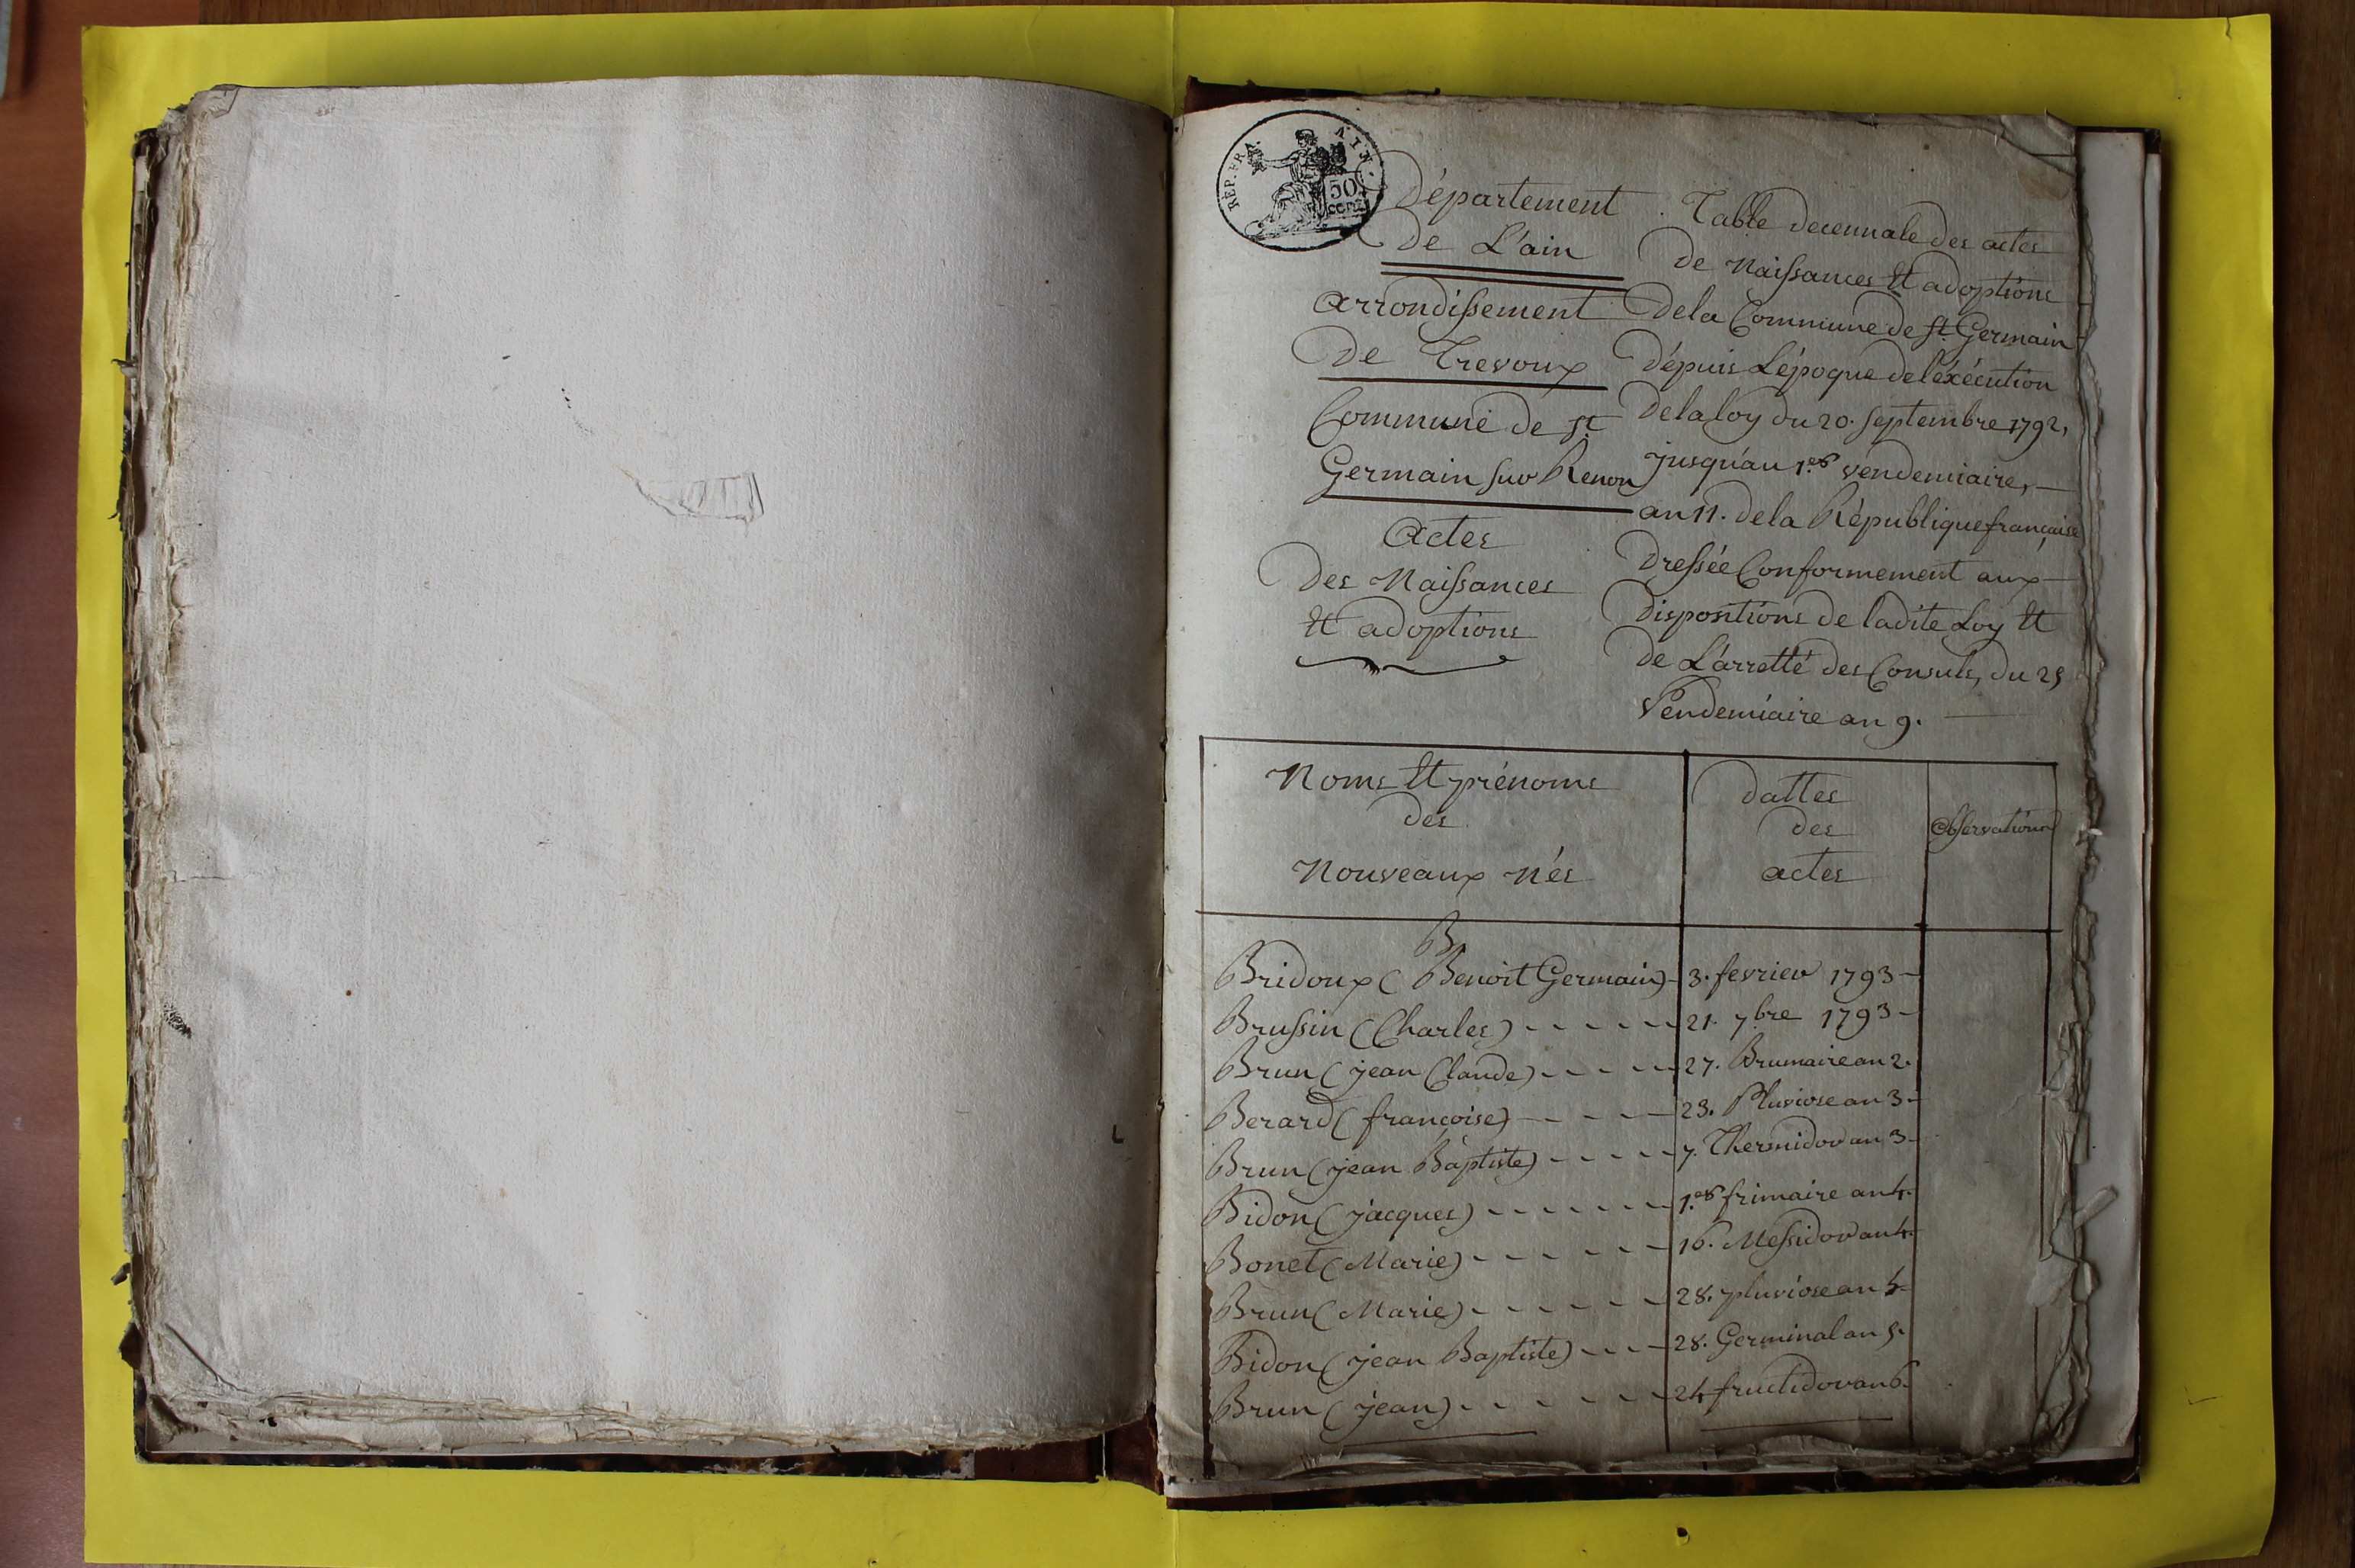 RÉP. FRA.
50
CENT.
Département
de L'ain
arrondissement
de Trevoux
Commune de St
Germain sur Renon
actes
des Naissances
Et adoptions
Table decennale des actes
de Naissances Et adoptions
dela Commune de St Germain
dépuis L'époque del'éxécution
delaloy du 20. septembre 1792,
jusqu'au 1.er vendemiaire,
an 11. dela République française
dressée Conformement aux
dispositions de ladite Loy Et
de L'arretté des Consuls, du 25
Vendemiaire an 9.
Noms Et prénoms
des
Nouveaux Nés
dattes
des
actes
observations
B
Bridoux (Benoit Germain) 3. fevrier 1793
Brussin (Charles) 21. 7bre 1793
Brun (jean Claude) 27. Brumaire an 2.
Berard (françoise) 23. Pluviose an 3
Brun (jean Baptiste) 7. Thermidor an 3
Bidon (jacques) 1.er frimaire an 4.
Bonet (Marie) 16. Messidor an 4.
Brun (Marie) 28. pluviose an 5
Bidon (jean Baptiste) 28. Germinal an 5.
Brun (jean) 24 fructidor an 6.